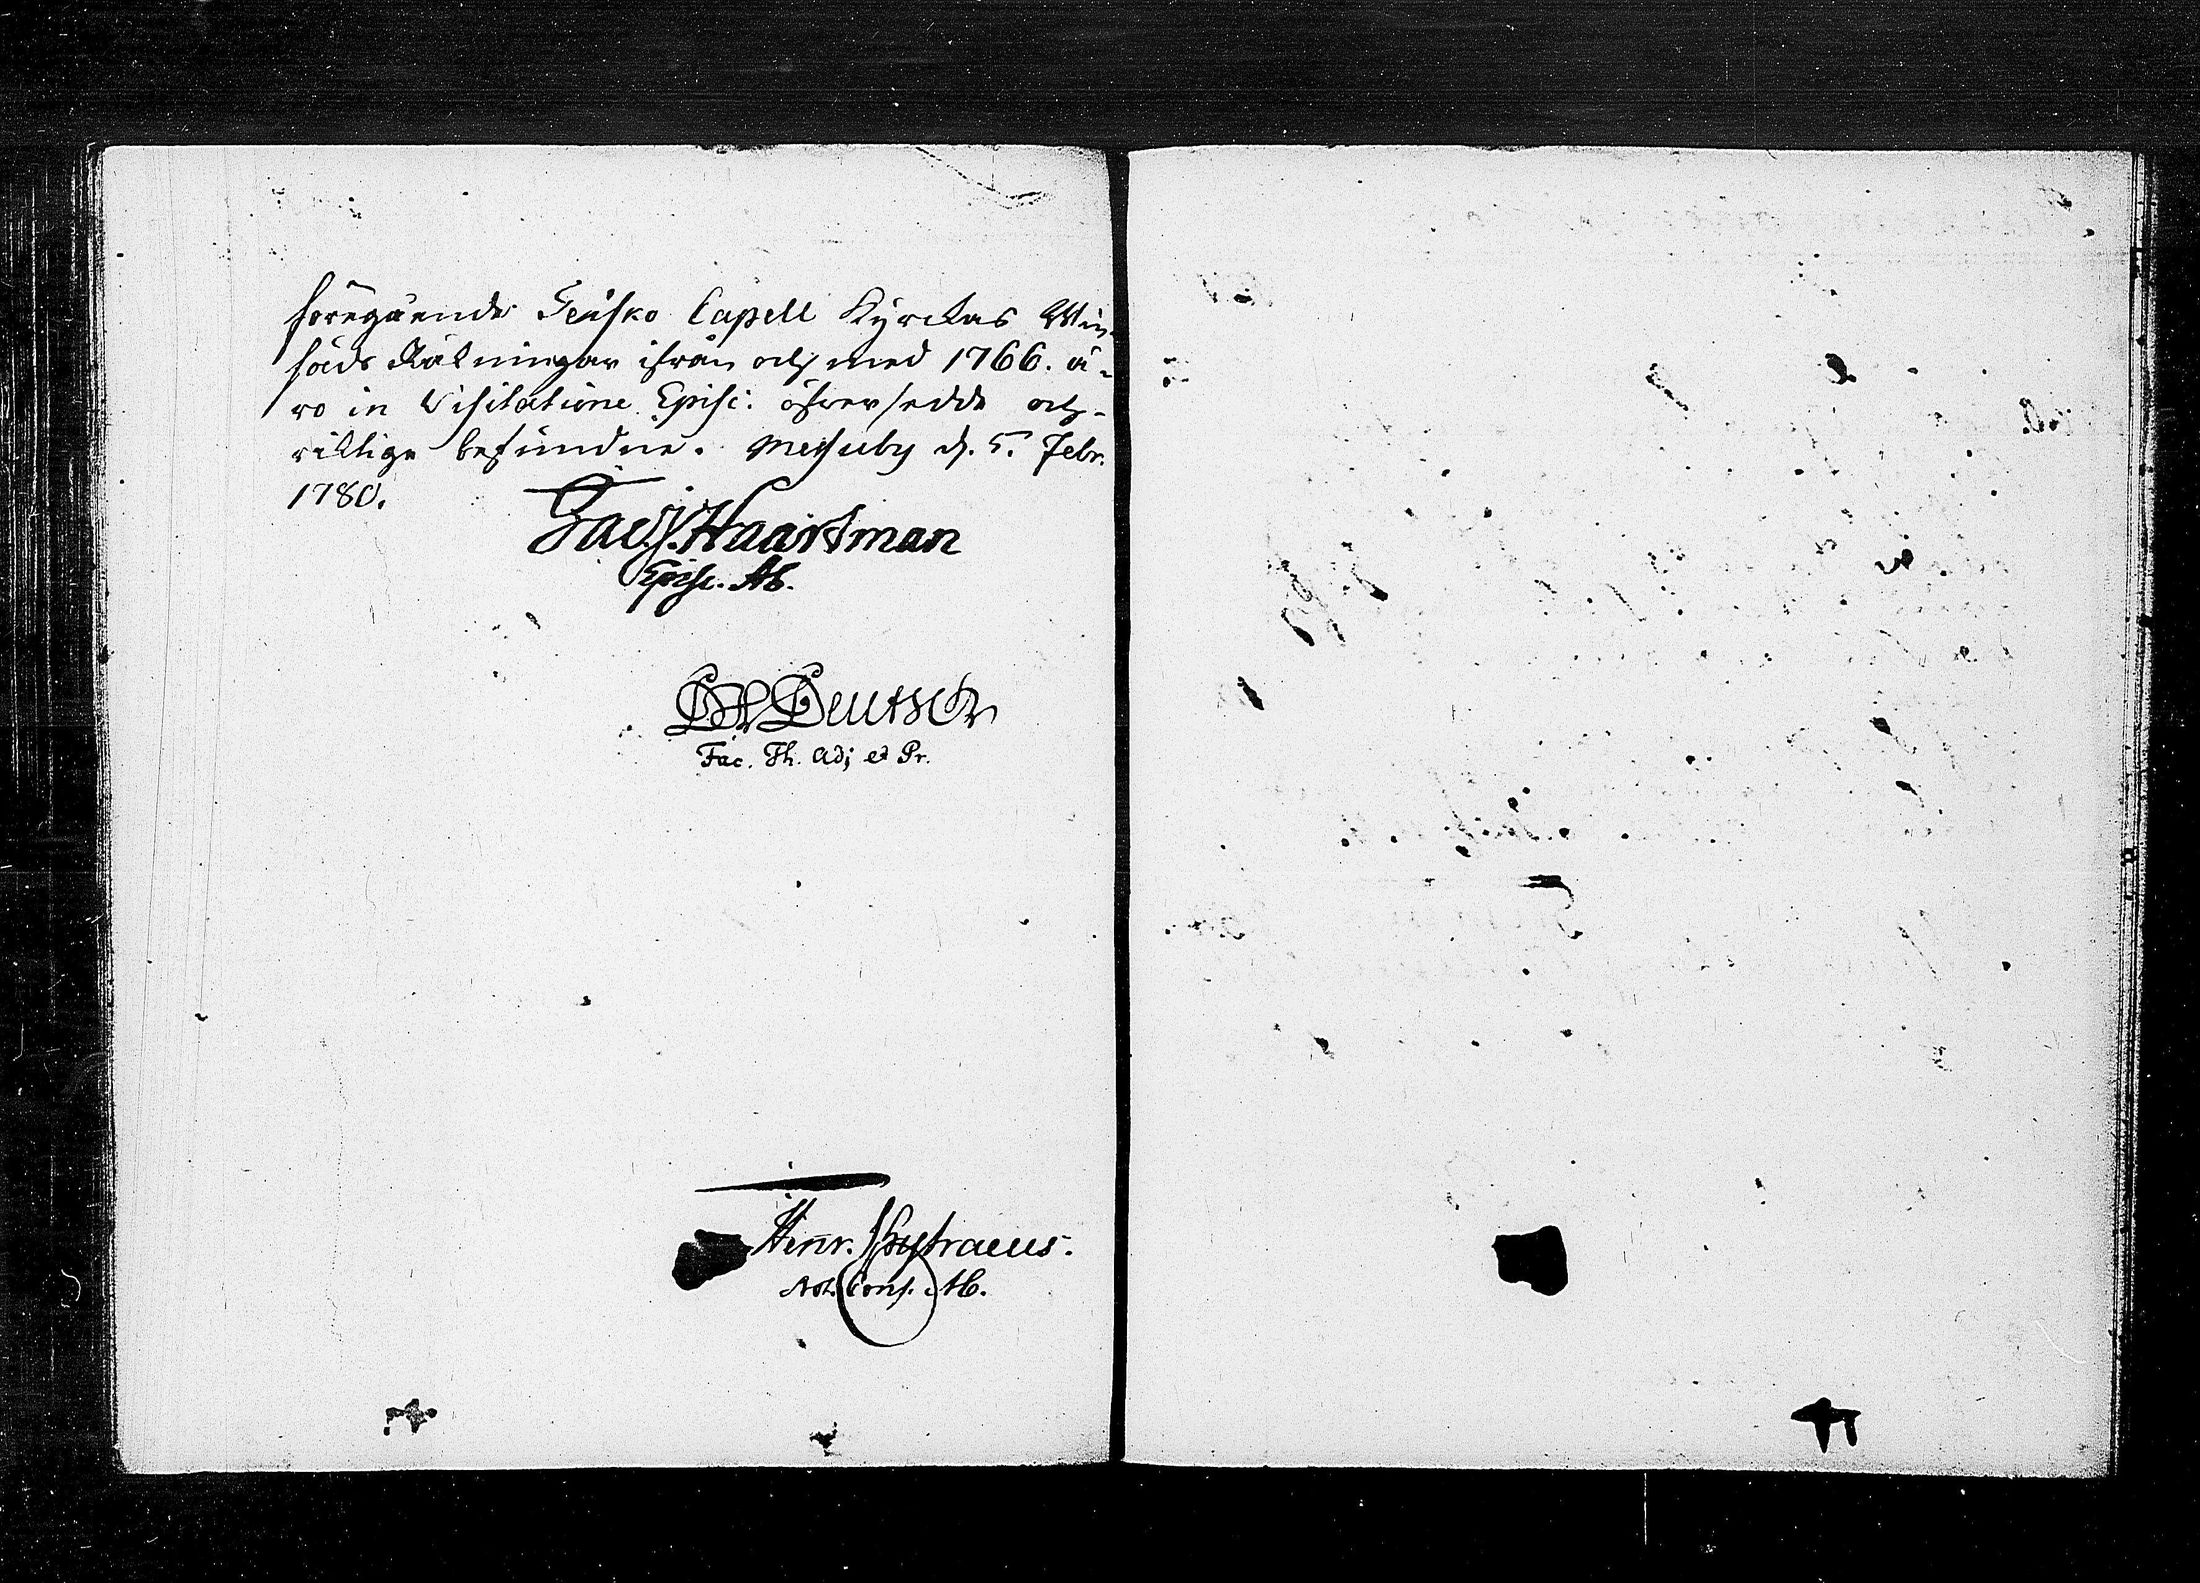 föregående Teisko Capell Kyrckas Win-
säds Räkningar ifrån och med 1766. ä-
ro in Visitatione Episc: öfwersedde och
riktige befundne. Messuby d. 5. Febr.
1780.
Jac. Haartman
Episc. Ab.
Deutsch
Fac. Th. Adj et Pr.
Henr. Spytraeus.
Not. Cons. Ab.